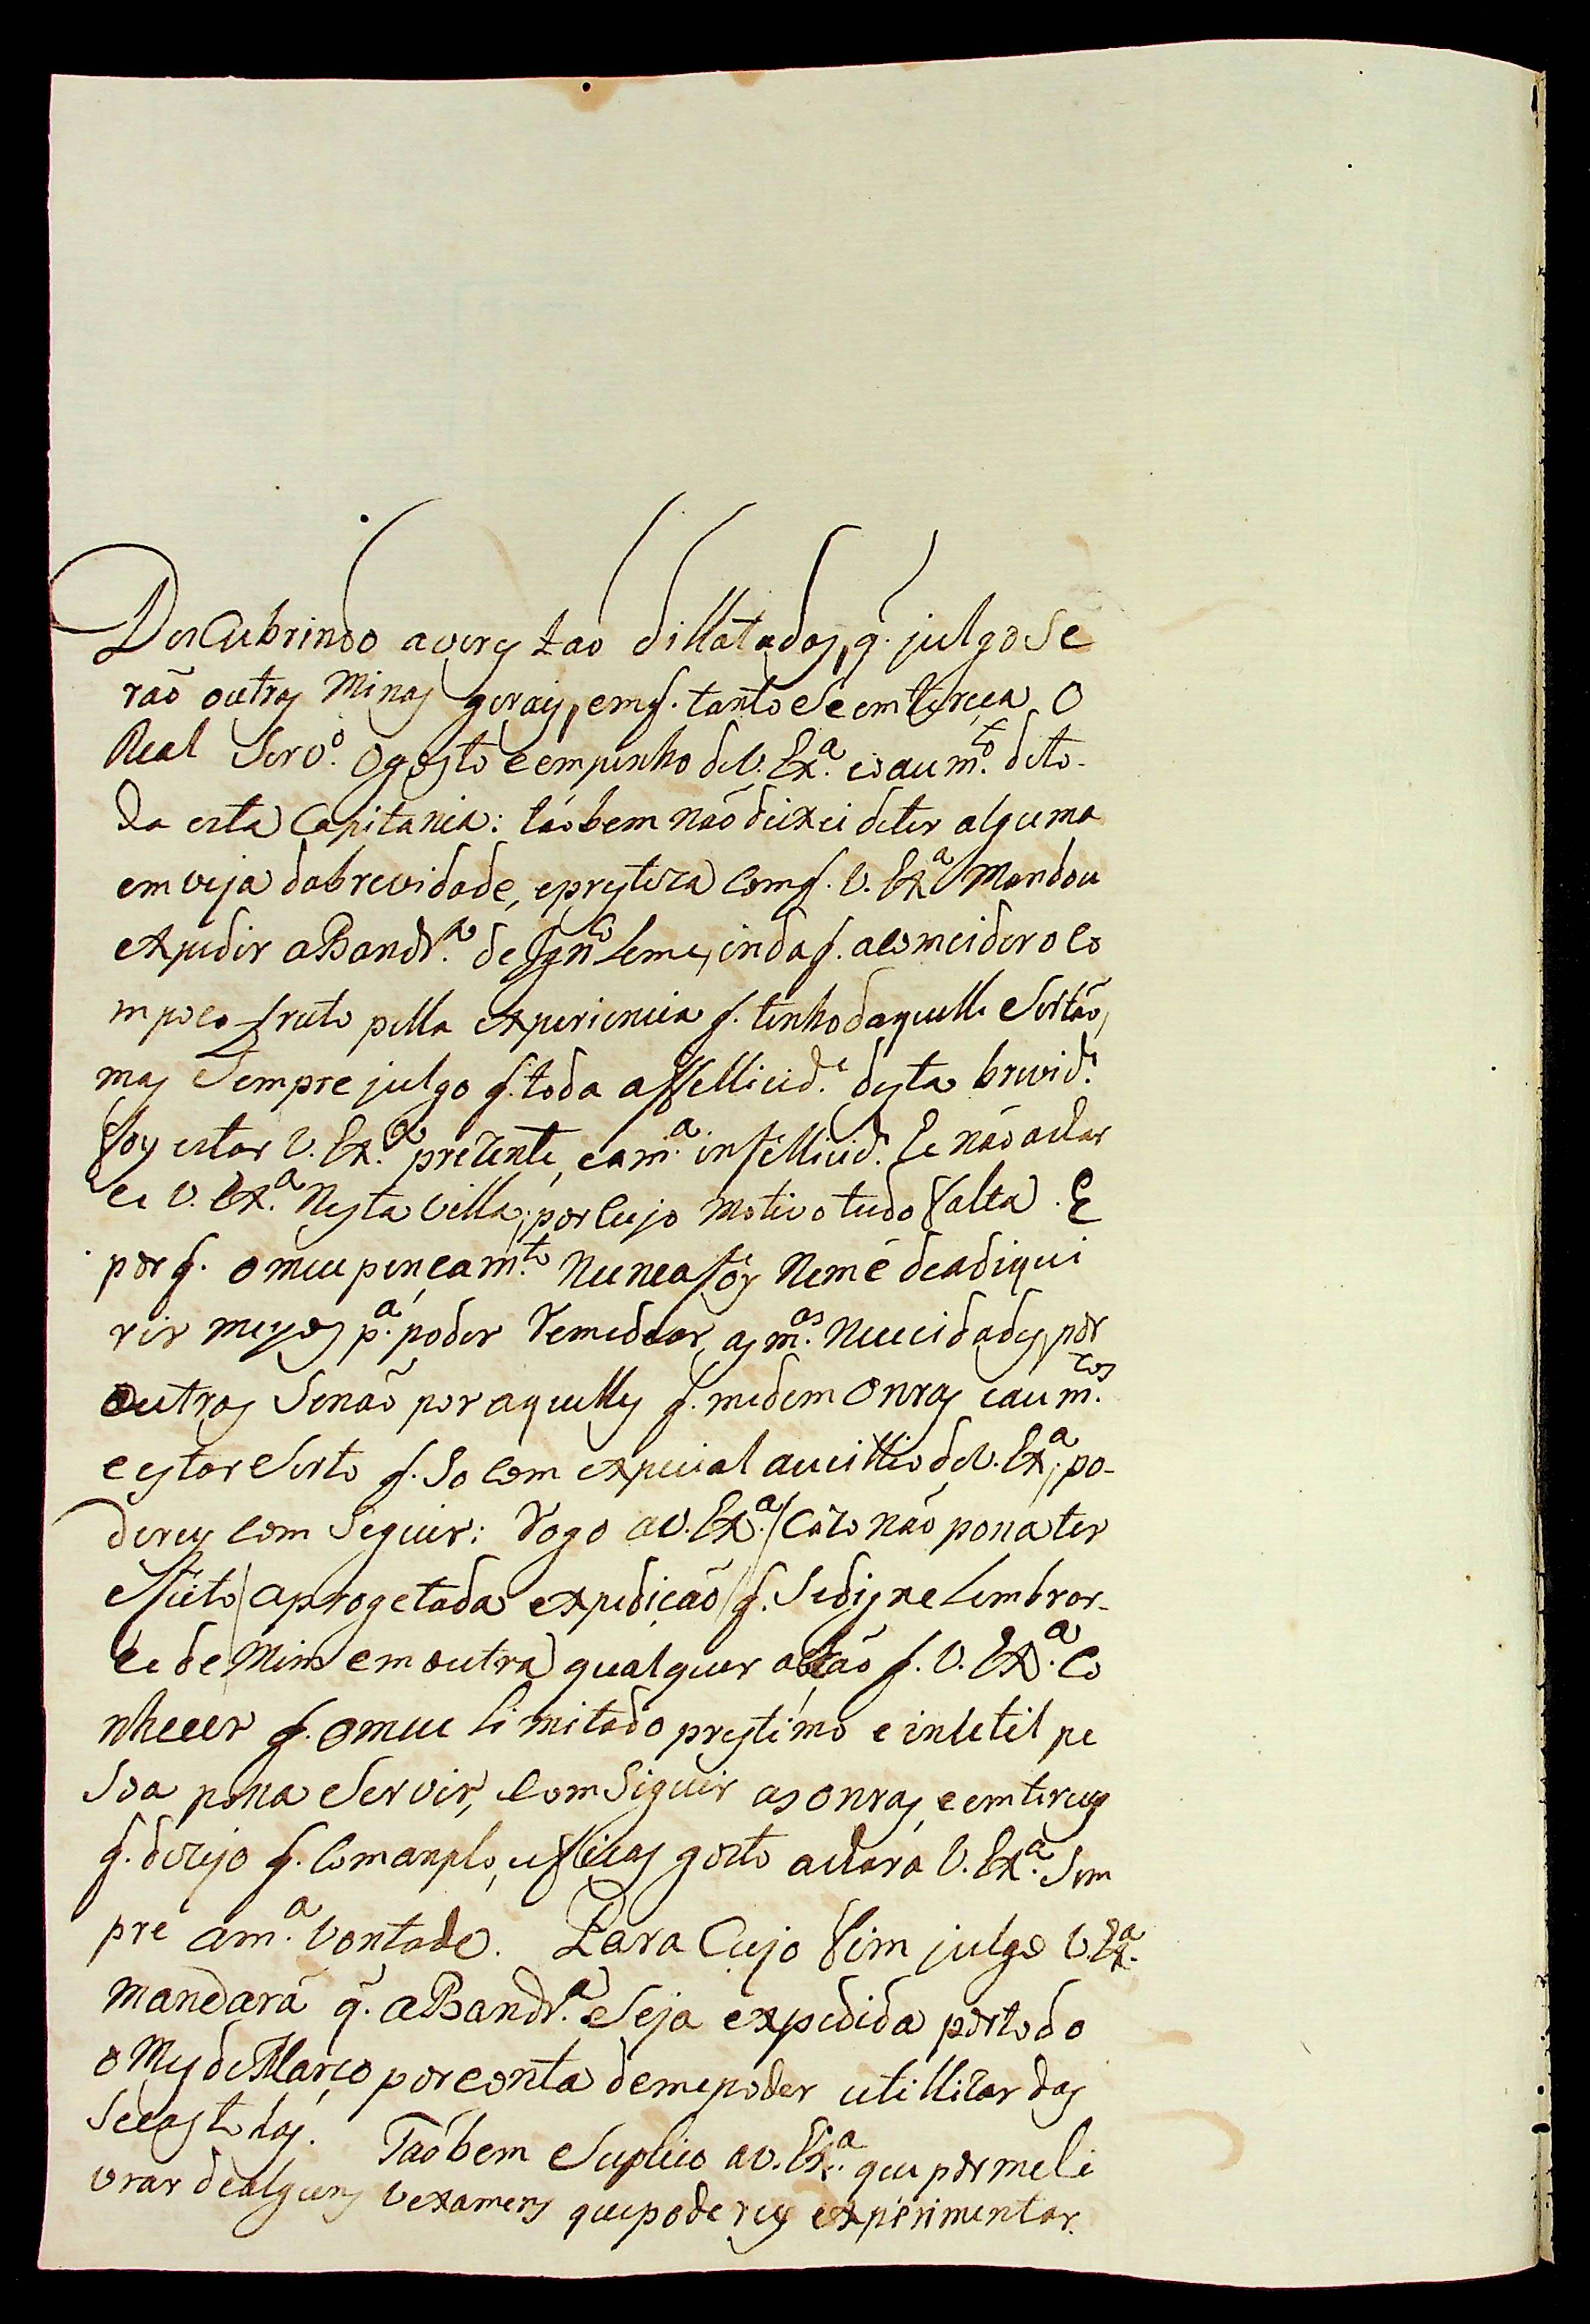 DesCubrindo averes tao dillatados, q. julgo Se
raõ outras Minas gerais, em q. tanto Se emtereça O
Real Serv.º O gosto e empenho de V. Ex.ª e o aum.to deto-
da esta Capitania: taobem naõ deixei deter alguma
emveja dabrevidade, epresteza Com q. V. Ex.ª Mandou
expedir aBandr.ª de Ign.co Leme, inda q. a comcidero Co
m poco fruto pella experiencia q. tenho daquelle Sertaõ,
mas Sempre julgo q. toda afellicid.e desta brevid.e
foy estar V. Ex.ª prezente, eam.ª infellicid.e he naõ achar
Ce V. Ex.ª Nesta Villa, por Cujo Motivo tudo falta. E
por q. omeu pençam.to Nunca foy Nem é deadiqui
rir meyos p.ª poder Remedear as m.as Necicidades, por
outros Senaõ por aquelles q. medem Onras eaum.tos
eestar Serto q. So Com expecial aucillio de V. Ex.ª, po-
derey Com Seguir: Rogo aV. Ex.ª / Cazo naõ posa ter
efeito / aprogetada expediçaõ / q. Sedigne Lembrar-
Ce de Mim em outra qualquer açaõ q. V. Ex.ª Co
nhecer q. omeu Limitado prestimo e inutil pe
Soa posa Servir, Com Siguir as onras, e emterces
q. dezejo q. Com amplo, eficas gosto achará V. Ex.ª Sem
pre am.ª Vontade. Para Cujo fim julgo V. Ex.ª
mandará q. aBandr.ª Seja expedida portodo
o Mes de Março por conta demepoder utillizar das
Secas todas. Taobem Suplico aV. Ex.ª que por meLi
vrar dealguns Vexames quepoderey experimentar.